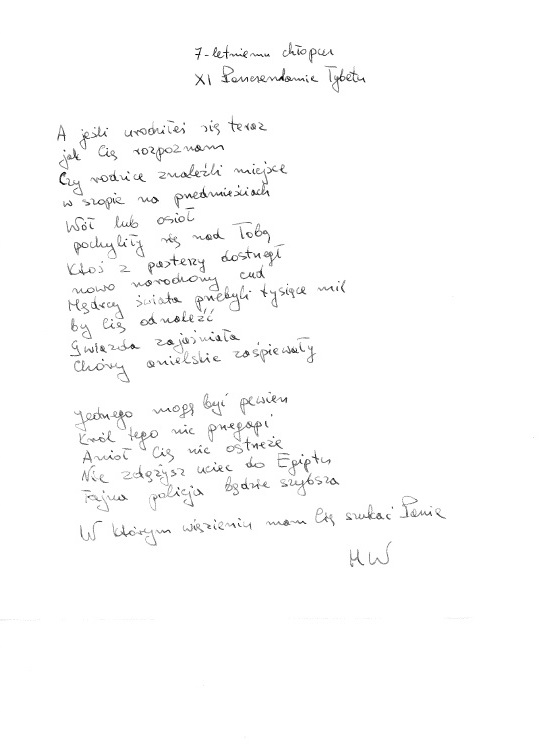 7-letniemu chłopcu
XI Panczendamie Tybetu
A jeśli urodziłeś się teraz
jak Cię rozpoznam
Czy rodzice znaleźli miejsce
w szopie na przedmieściach
Wół lub osioł
pochyliły się nad Tobą
Ktoś z pasterzy dostrzegł
nowo narodzony cud
Mędrcy świata przebyli tysiące mil
by Cię odnaleźć
Gwiazda zajaśniała
Chóry anielskie zaśpiewały
Jednego mogę być pewien
Król tego nie przegapi
Anioł Cię nie ostrzeże
Nie zdążysz uciec do Egiptu
Tajna policja będzie szybsza
W którym więzieniu mam Cię szukać Panie
MW